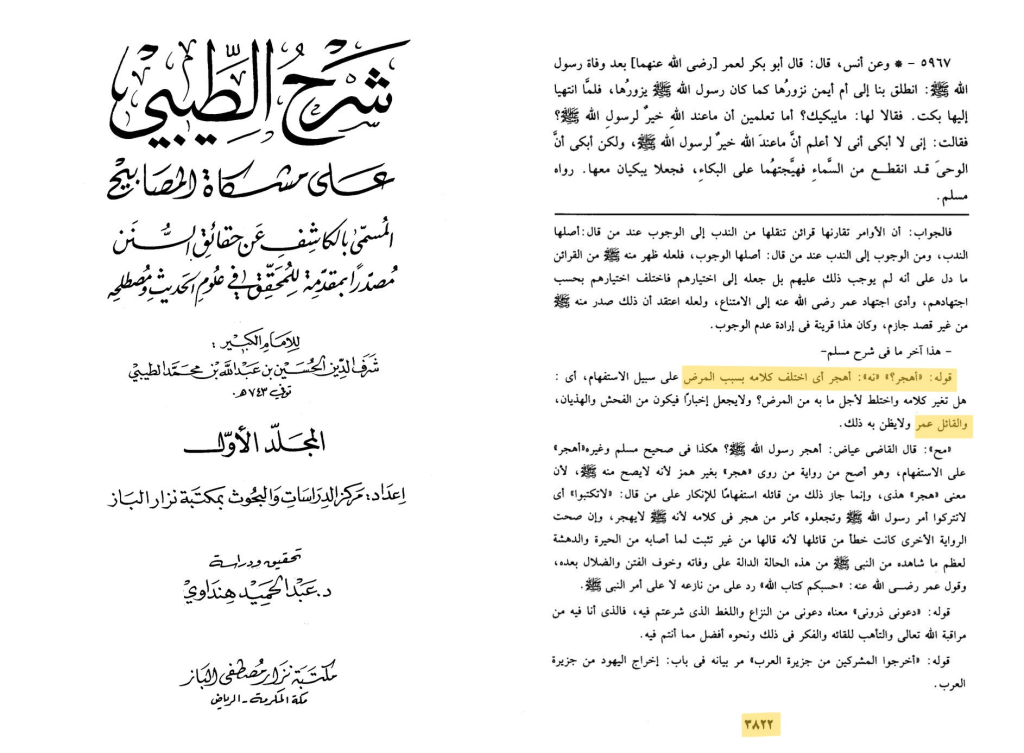 شرح الطيبي
على مشكاة المصابيح
المسمى بالكاشف عن حقائق السنن
مصدرًا بمقدمة للمحقق في علوم الحديث ومصطلحه
للإمام الكبير :
شرف الدين الحسين بن عبد الله بن محمد الطيبي
توفي ٧٤٣ هـ.
المجلد الأول
إعداد: مركز الدراسات والبحوث بمكتبة نزار الباز
تحقيق ودراسة
د. عبد الحميد هنداوي
مكتبة نزار مصطفى الباز
مكة المكرمة - الرياض
٥٩٦٧ - * وعن أنس، قال: قال أبو بكر لعمر [رضى الله عنهما] بعد وفاة رسول
الله ﷺ: انطلق بنا إلى أم أيمن نزورُها كما كان رسول الله ﷺ يزورُها، فلمَّا انتهيا
إليها بكت. فقالا لها: مايبكيك؟ أما تعلمين أن ماعند اللهِ خيرٌ لرسولِ اللهِ ﷺ؟
فقالت: إنى لا أبكى أنى لا أعلم أنَّ ماعندَ الله خيرٌ لرسول الله ﷺ، ولكن أبكى أنَّ
الوحىَ قد انقطع من السَّماءِ فهيَّجتهُما على البكاءِ، فجعلا يبكيان معها. رواه
مسلم.
فالجواب: أن الأوامر تقارنها قرائن تنقلها من الندب إلى الوجوب عند من قال: أصلها
الندب، ومن الوجوب إلى الندب عند من قال: أصلها الوجوب، فلعله ظهر منه ﷺ من القرائن
ما دل على أنه لم يوجب ذلك عليهم بل جعله إلى اختيارهم فاختلف اختيارهم بحسب
اجتهادهم، وأدى اجتهاد عمر رضى الله عنه إلى الامتناع، ولعله اعتقد أن ذلك صدر منه ﷺ
من غير قصد جازم، وكان هذا قرينة فى إرادة عدم الوجوب.
- هذا آخر ما فى شرح مسلم-
قوله: «أهجر؟» «نه»: أهجر أى اختلف كلامه بسبب المرض على سبيل الاستفهام، أى :
هل تغير كلامه واختلط لأجل ما به من المرض؟ ولايجعل إخبارًا فيكون من الفحش والهذيان،
والقائل عمر ولايظن به ذلك.
«مح»: قال القاضى عياض: أهجر رسول الله ﷺ؟ هكذا فى صحيح مسلم وغيره«أهجر»
على الاستفهام، وهو أصح من رواية من روى «هجر» بغير همز لأنه لايصح منه ﷺ، لأن
معنى «هجر» هذى، وإنما جاز ذلك من قائله استفهامًا للإنكار على من قال: «لاتكتبوا» أى
لاتتركوا أمر رسول الله ﷺ وتجعلوه كأمر من هجر فى كلامه لأنه ﷺ لايهجر، وإن صحت
الرواية الأخرى كانت خطأ من قائلها لأنه قالها من غير تثبت لما أصابه من الحيرة والدهشة
لعظم ما شاهده من النبى ﷺ من هذه الحالة الدالة على وفاته وخوف الفتن والضلال بعده،
وقول عمر رضى الله عنه: «حسبكم كتاب الله» رد على من نازعه لا على أمر النبى ﷺ.
قوله: «دعونى ذرونى» معناه دعونى من النزاع واللغط الذى شرعتم فيه، فالذى أنا فيه من
مراقبة الله تعالى والتأهب للقائه والفكر فى ذلك ونحوه أفضل مما أنتم فيه.
قوله: «أخرجوا المشركين من جزيرة العرب» مر بيانه فى باب: إخراج اليهود من جزيرة
العرب.
٣٨٢٢